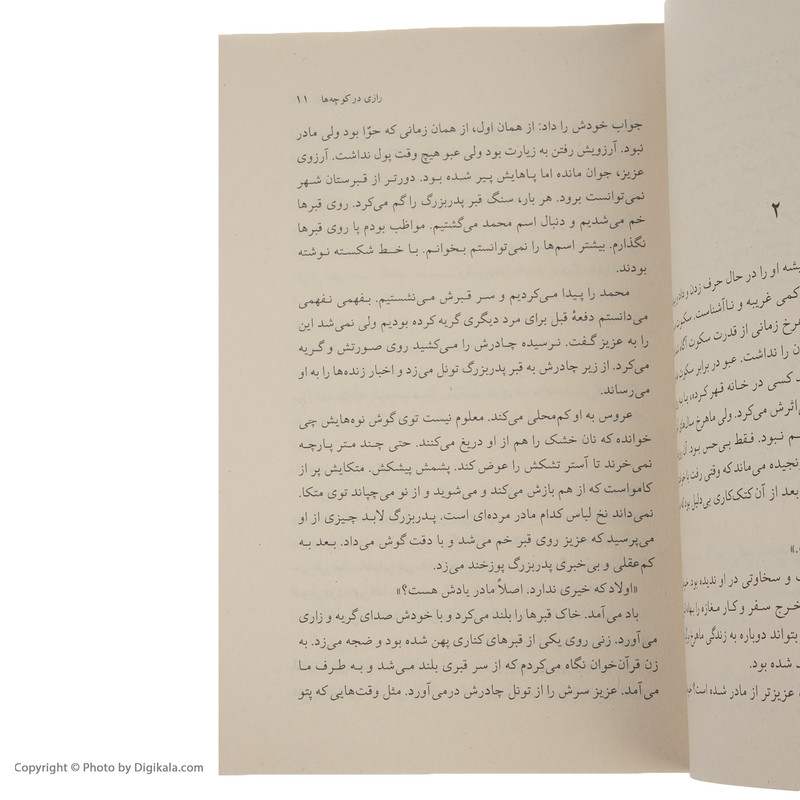 رازی در کوچه‌ها ۱۱
جواب خودش را داد: از همان اول، از همان زمانی که حوّا بود ولی مادر
نبود. آرزویش رفتن به زیارت بود ولی عبو هیچ وقت پول نداشت. آرزوی
عزیز، جوان مانده اما پاهایش پیر شده بود. دورتر از قبرستان شهر
نمی‌توانست برود. هر بار، سنگ قبر پدربزرگ را گم می‌کرد. روی قبرها
خم می‌شدیم و دنبال اسم محمد می‌گشتیم. مواظب بودم پا روی قبرها
نگذارم. بیشتر اسم‌ها را نمی‌توانستم بخوانم. با خط شکسته نوشته
بودند.
محمد را پیدا می‌کردیم و سر قبرش می‌نشستیم. بفهمی نفهمی
می‌دانستم دفعهٔ قبل برای مرد دیگری گریه کرده بودیم ولی نمی‌شد این
را به عزیز گفت. نرسیده چادرش را می‌کشید روی صورتش و گریه
می‌کرد. از زیر چادرش به قبر پدربزرگ تونل می‌زد و اخبار زنده‌ها را به او
می‌رساند.
عروس به او کم‌محلی می‌کند. معلوم نیست توی گوش نوه‌هایش چی
خوانده که نان خشک را هم از او دریغ می‌کنند. حتی چند متر پارچه
نمی‌خرند تا آستر تشکش را عوض کند. پشمش پیشکش. متکایش پر از
کامواست که از هم بازش می‌کند و می‌شوید و از نو می‌چپاند توی متکا.
نمی‌داند نخ لباس کدام مادر مرده‌ای است. پدربزرگ لابد چیزی از او
می‌پرسید که عزیز روی قبر خم می‌شد و با دقت گوش می‌داد. بعد به
کم‌عقلی و بی‌خبری پدربزرگ پوزخند می‌زد.
«اولاد که خیری ندارد. اصلاً مادر یادش هست؟»
باد می‌آمد. خاک قبرها را بلند می‌کرد و با خودش صدای گریه و زاری
می‌آورد. زنی روی یکی از قبرهای کناری پهن شده بود و ضجه می‌زد. به
زن قرآن‌خوان نگاه می‌کردم که از سر قبری بلند می‌شد و به طرف ما
می‌آمد. عزیز سرش را از تونل چادرش درمی‌آورد. مثل وقت‌هایی که پتو
۲
او را در حال حرف زدن و
کمی غریبه و ناآشناست.
زمانی از قدرت سکوت آگاه
را نداشت. عبو در برابر سکوت
کسی در خانه قهر کرده
اثرش می‌کرد. ولی ماهرخ
نبود. فقط بی‌حس بود.
می‌ماند که وقتی رفت
بعد از آن کتک‌کاری بی‌دلیل
.»
و سخاوتی در او ندیده بود.
خرج سفر و کار مغازه را
بتواند دوباره به زندگی ماهرخ
شده بود.
عزیزتر از مادر شده است؟
Copyright © Photo by Digikala.com